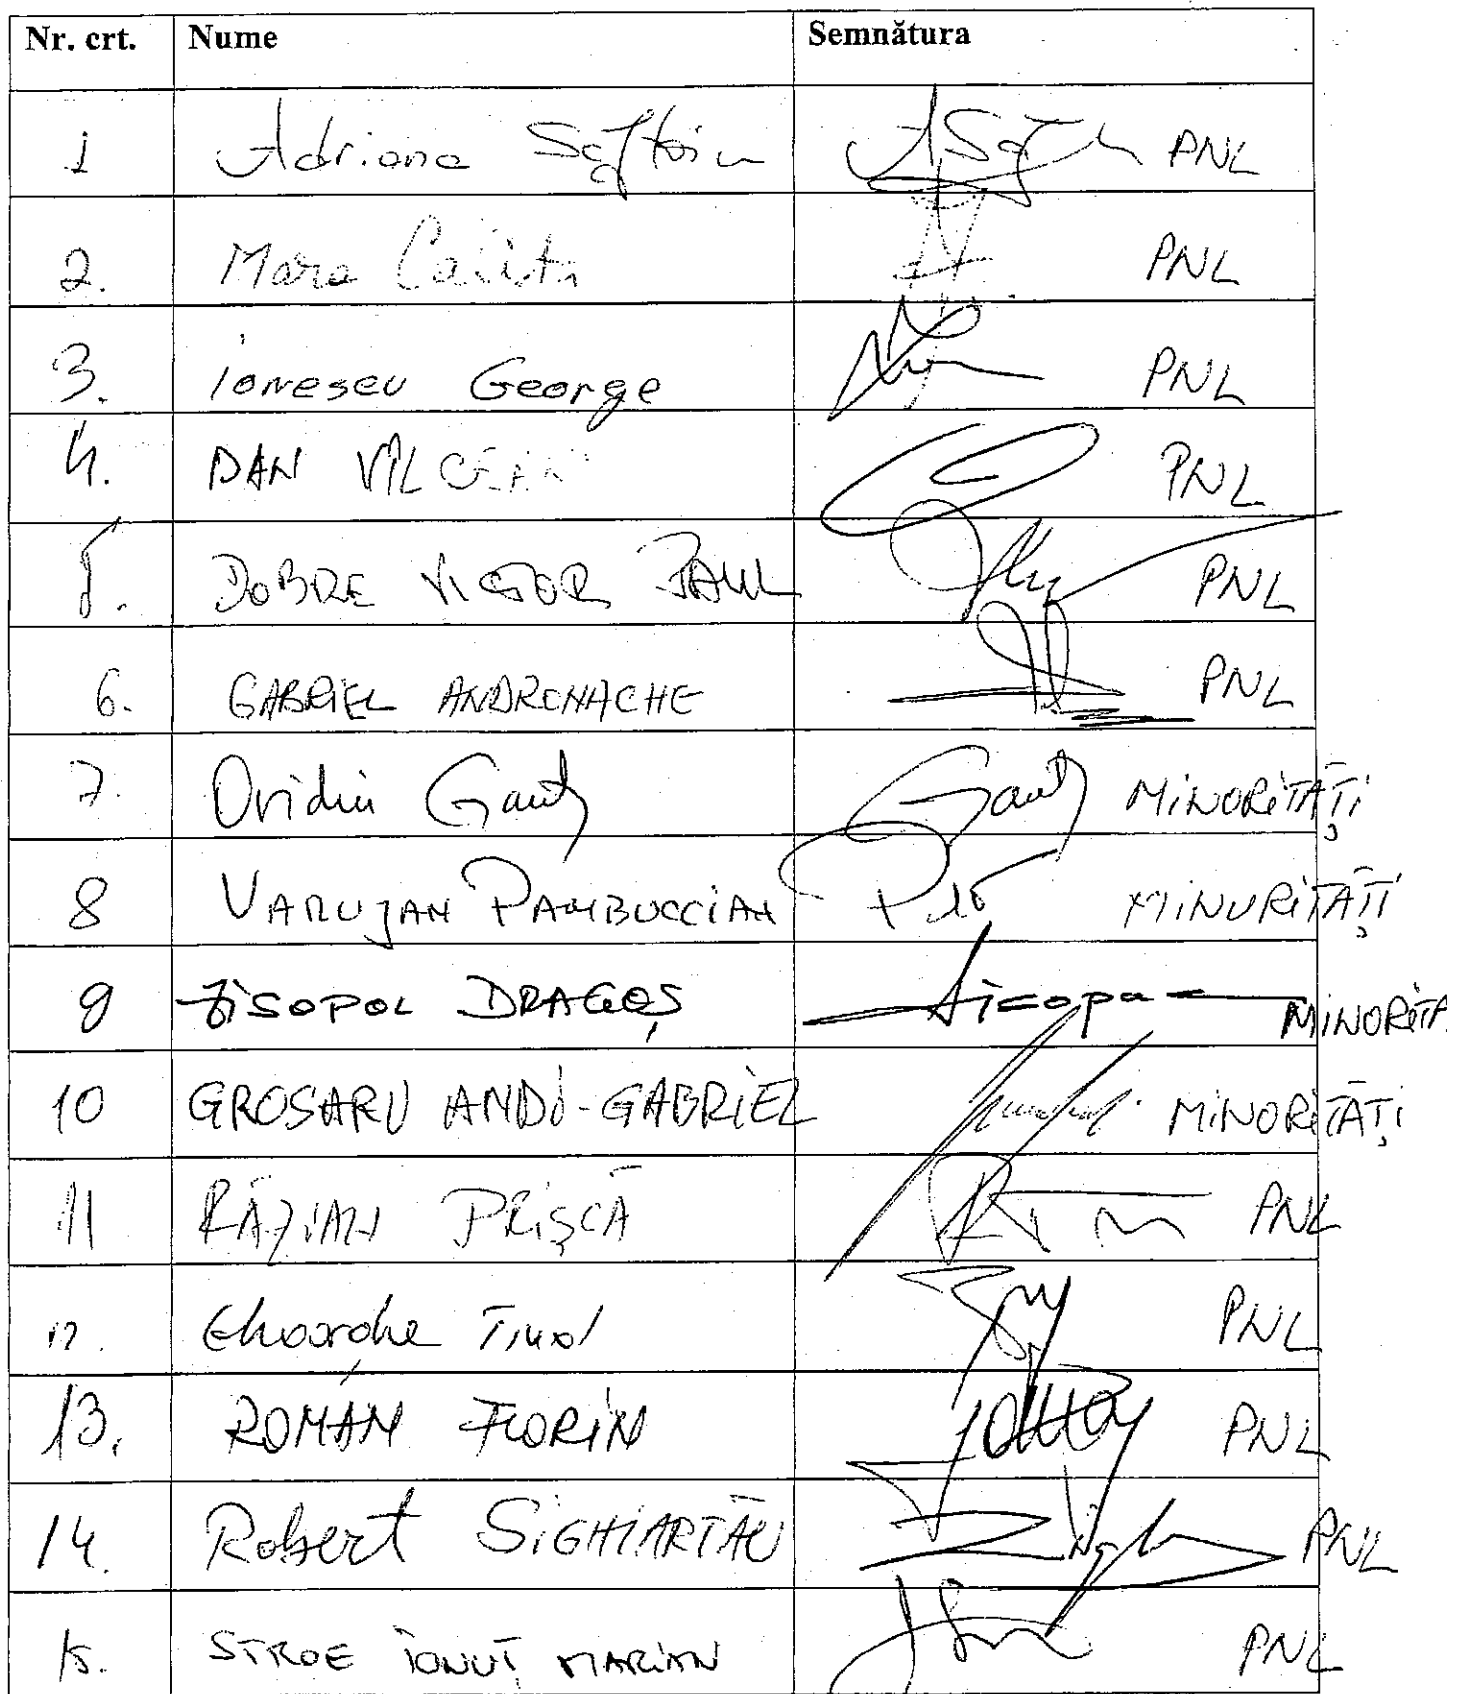 Nr. crt. Nume Semnătura
1 Adriana Săftoiu PNL
2. Mara Calista PNL
3. Ionescu George PNL
4. DAN VÎLCEAN PNL
5. DOBRE VICTOR PAUL PNL
6. GABRIEL ANDRONACHE PNL
7. Ovidiu Ganț Ganț MINORITĂȚI
8 VARUJAN PAMBUCCIAN MINORITĂȚI
9 ZISOPOL DRAGOȘ MINORITĂ
10 GROSARU ANDI-GABRIEL MINORITĂȚI
11 RĂZVAN PRIȘCĂ PNL
12. Gheorghe PNL
13. ROMAN FLORIN PNL
14. Robert SIGHIARTĂU PNL
15. STROE IONUȚ MARIAN PNL